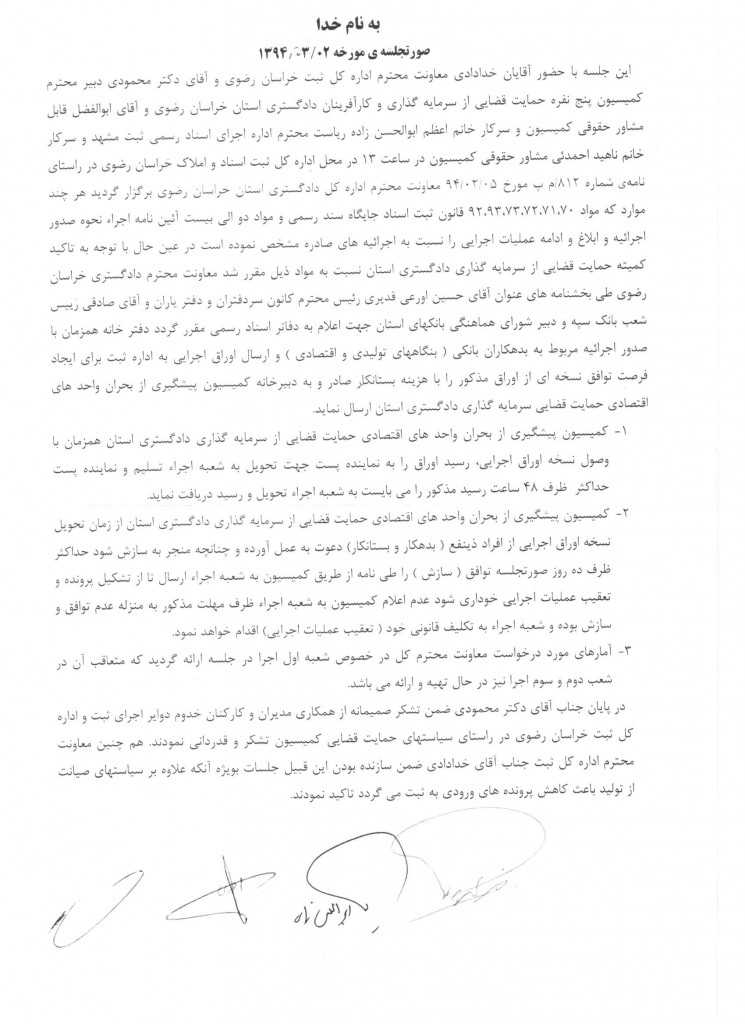 به نام خدا
صورتجلسه ی مورخه ۱۳۹۴/۰۳/۰۲
این جلسه با حضور آقایان خدادادی معاونت محترم اداره کل ثبت خراسان رضوی و آقای دکتر محمودی دبیر محترم
کمیسیون پنج نفره حمایت قضایی از سرمایه گذاری و کارآفرینان دادگستری استان خراسان رضوی و آقای ابوالفضل قابل
مشاور حقوقی کمیسیون و سرکار خانم اعظم ابوالحسن زاده ریاست محترم اداره اجرای اسناد رسمی ثبت مشهد و سرکار
خانم ناهید احمدئی مشاور حقوقی کمیسیون در ساعت ۱۳ در محل اداره کل ثبت اسناد و املاک خراسان رضوی در راستای
نامه‌ی شماره ۸۱۲/م ب مورخ ۹۴/۰۲/۰۵ معاونت محترم اداره کل دادگستری استان خراسان رضوی برگزار گردید هر چند
موارد که مواد ۹۲،۹۳،۷۳،۷۲،۷۱،۷۰ قانون ثبت اسناد جایگاه سند رسمی و مواد دو الی بیست آئین نامه اجراء نحوه صدور
اجرائیه و ابلاغ و ادامه عملیات اجرایی را نسبت به اجرائیه های صادره مشخص نموده است در عین حال با توجه به تاکید
کمیته حمایت قضایی از سرمایه گذاری دادگستری استان نسبت به مواد ذیل مقرر شد معاونت محترم دادگستری خراسان
رضوی طی بخشنامه های عنوان آقای حسین اورعی قدیری رئیس محترم کانون سردفتران و دفتر یاران و آقای صادقی رییس
شعب بانک سپه و دبیر شورای هماهنگی بانکهای استان جهت اعلام به دفاتر اسناد رسمی مقرر گردد دفتر خانه همزمان با
صدور اجرائیه مربوط به بدهکاران بانکی ( بنگاههای تولیدی و اقتصادی ) و ارسال اوراق اجرایی به اداره ثبت برای ایجاد
فرصت توافق نسخه ای از اوراق مذکور را با هزینه بستانکار صادر و به دبیرخانه کمیسیون پیشگیری از بحران واحد های
اقتصادی حمایت قضایی سرمایه گذاری دادگستری استان ارسال نماید.
۱- کمیسیون پیشگیری از بحران واحد های اقتصادی حمایت قضایی از سرمایه گذاری دادگستری استان همزمان با
وصول نسخه اوراق اجرایی، رسید اوراق را به نماینده پست جهت تحویل به شعبه اجراء تسلیم و نماینده پست
حداکثر ظرف ۴۸ ساعت رسید مذکور را می بایست به شعبه اجراء تحویل و رسید دریافت نماید.
۲- کمیسیون پیشگیری از بحران واحد های اقتصادی حمایت قضایی از سرمایه گذاری دادگستری استان از زمان تحویل
نسخه اوراق اجرایی از افراد ذینفع ( بدهکار و بستانکار) دعوت به عمل آورده و چنانچه منجر به سازش شود حداکثر
ظرف ده روز صورتجلسه توافق ( سازش ) را طی نامه از طریق کمیسیون به شعبه اجراء ارسال تا از تشکیل پرونده و
تعقیب عملیات اجرایی خوداری شود عدم اعلام کمیسیون به شعبه اجراء ظرف مهلت مذکور به منزله عدم توافق و
سازش بوده و شعبه اجراء به تکلیف قانونی خود ( تعقیب عملیات اجرایی) اقدام خواهد نمود.
۳- آمارهای مورد درخواست معاونت محترم کل در خصوص شعبه اول اجرا در جلسه ارائه گردید که متعاقب آن در
شعب دوم و سوم اجرا نیز در حال تهیه و ارائه می باشد.
در پایان جناب آقای دکتر محمودی ضمن تشکر صمیمانه از همکاری مدیران و کارکنان خدوم دوایر اجرای ثبت و اداره
کل ثبت خراسان رضوی در راستای سیاستهای حمایت قضایی کمیسیون تشکر و قدردانی نمودند. هم چنین معاونت
محترم اداره کل ثبت جناب آقای خدادادی ضمن سازنده بودن این قبیل جلسات بویژه آنکه علاوه بر سیاستهای صیانت
از تولید باعث کاهش پرونده های ورودی به ثبت می گردد تاکید نمودند.